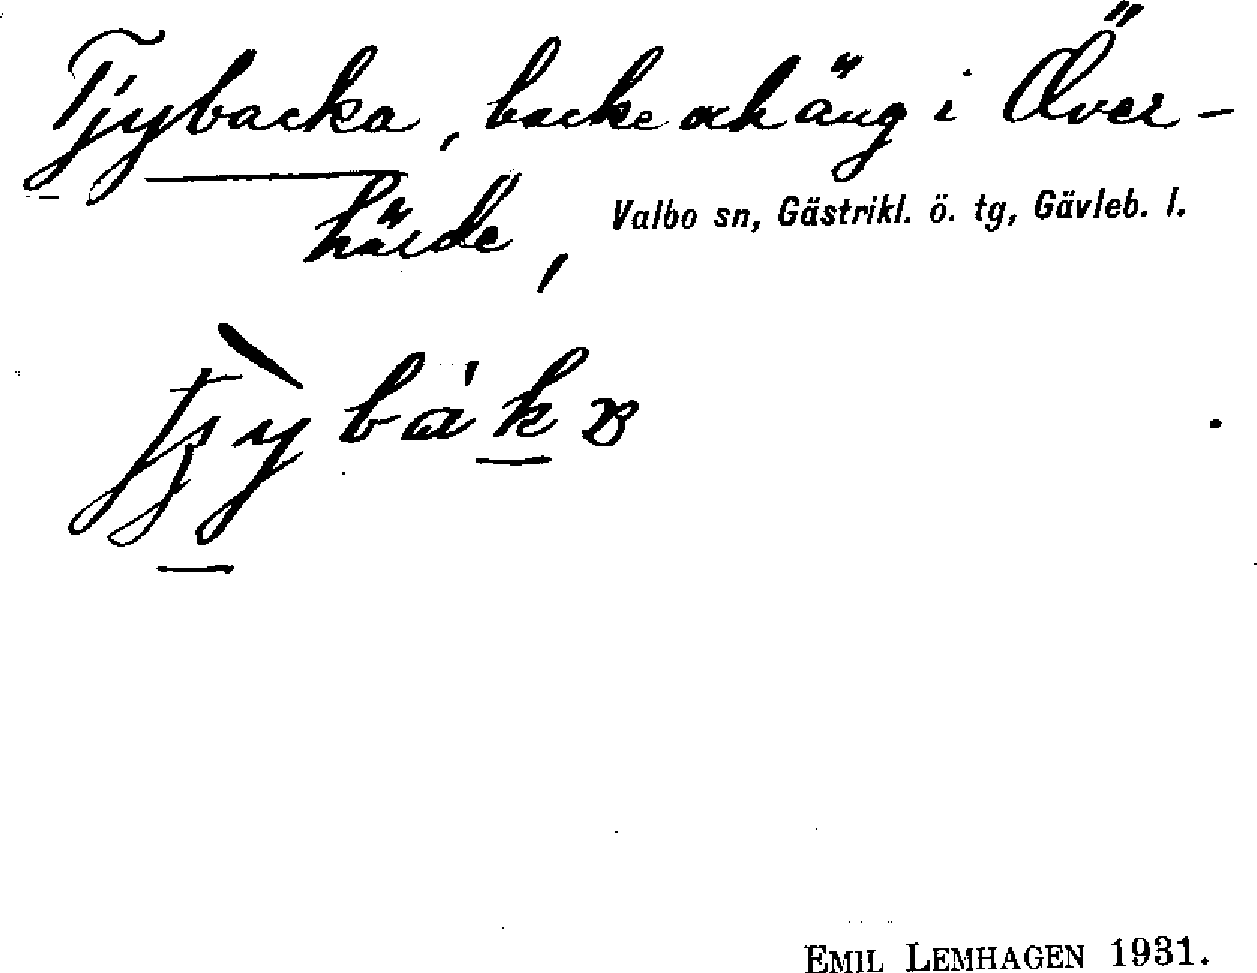 Tjybacka, backe och äng i Över-
härde, Valbo sn, Gästrikl. ö. tg, Gävleb. l.
tjỳbák
EMIL LEMHAGEN 1931.